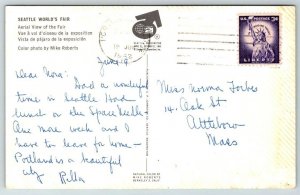 SEATTLE WORLD'S FAIR
Aerial View of the Fair
Vue à vol d'oiseau de la exposición
Vista de pájaro de la exposición
Color photo by Mike Roberts
U.S. POSTAGE
3¢
LIBERTY
June 19
Dear Nora: Had a wonderful
time in Seattle. Had
lunch on the Space Needle.
One more week and I
have to leave for home.
Portland is a beautiful
city. Rella
Miss Norma Forbes
14 Oak St
Attleboro
Mass
NATURAL COLOR BY
MIKE ROBERTS
BERKELEY 2, CALIF.